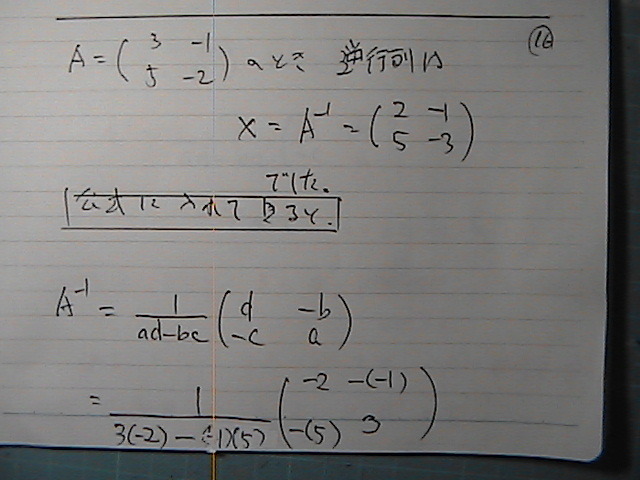 ⑯
A = ( 3 -1 ; 5 -2 ) のとき 逆行列は
X = A⁻¹ = ( 2 -1 ; 5 -3 )
でした。
公式に入れてみると.
A⁻¹ = 1/(ad-bc) ( d -b ; -c a )
= 1/(3(-2) - (-1)(5)) ( -2 -(-1) ; -(5) 3 )